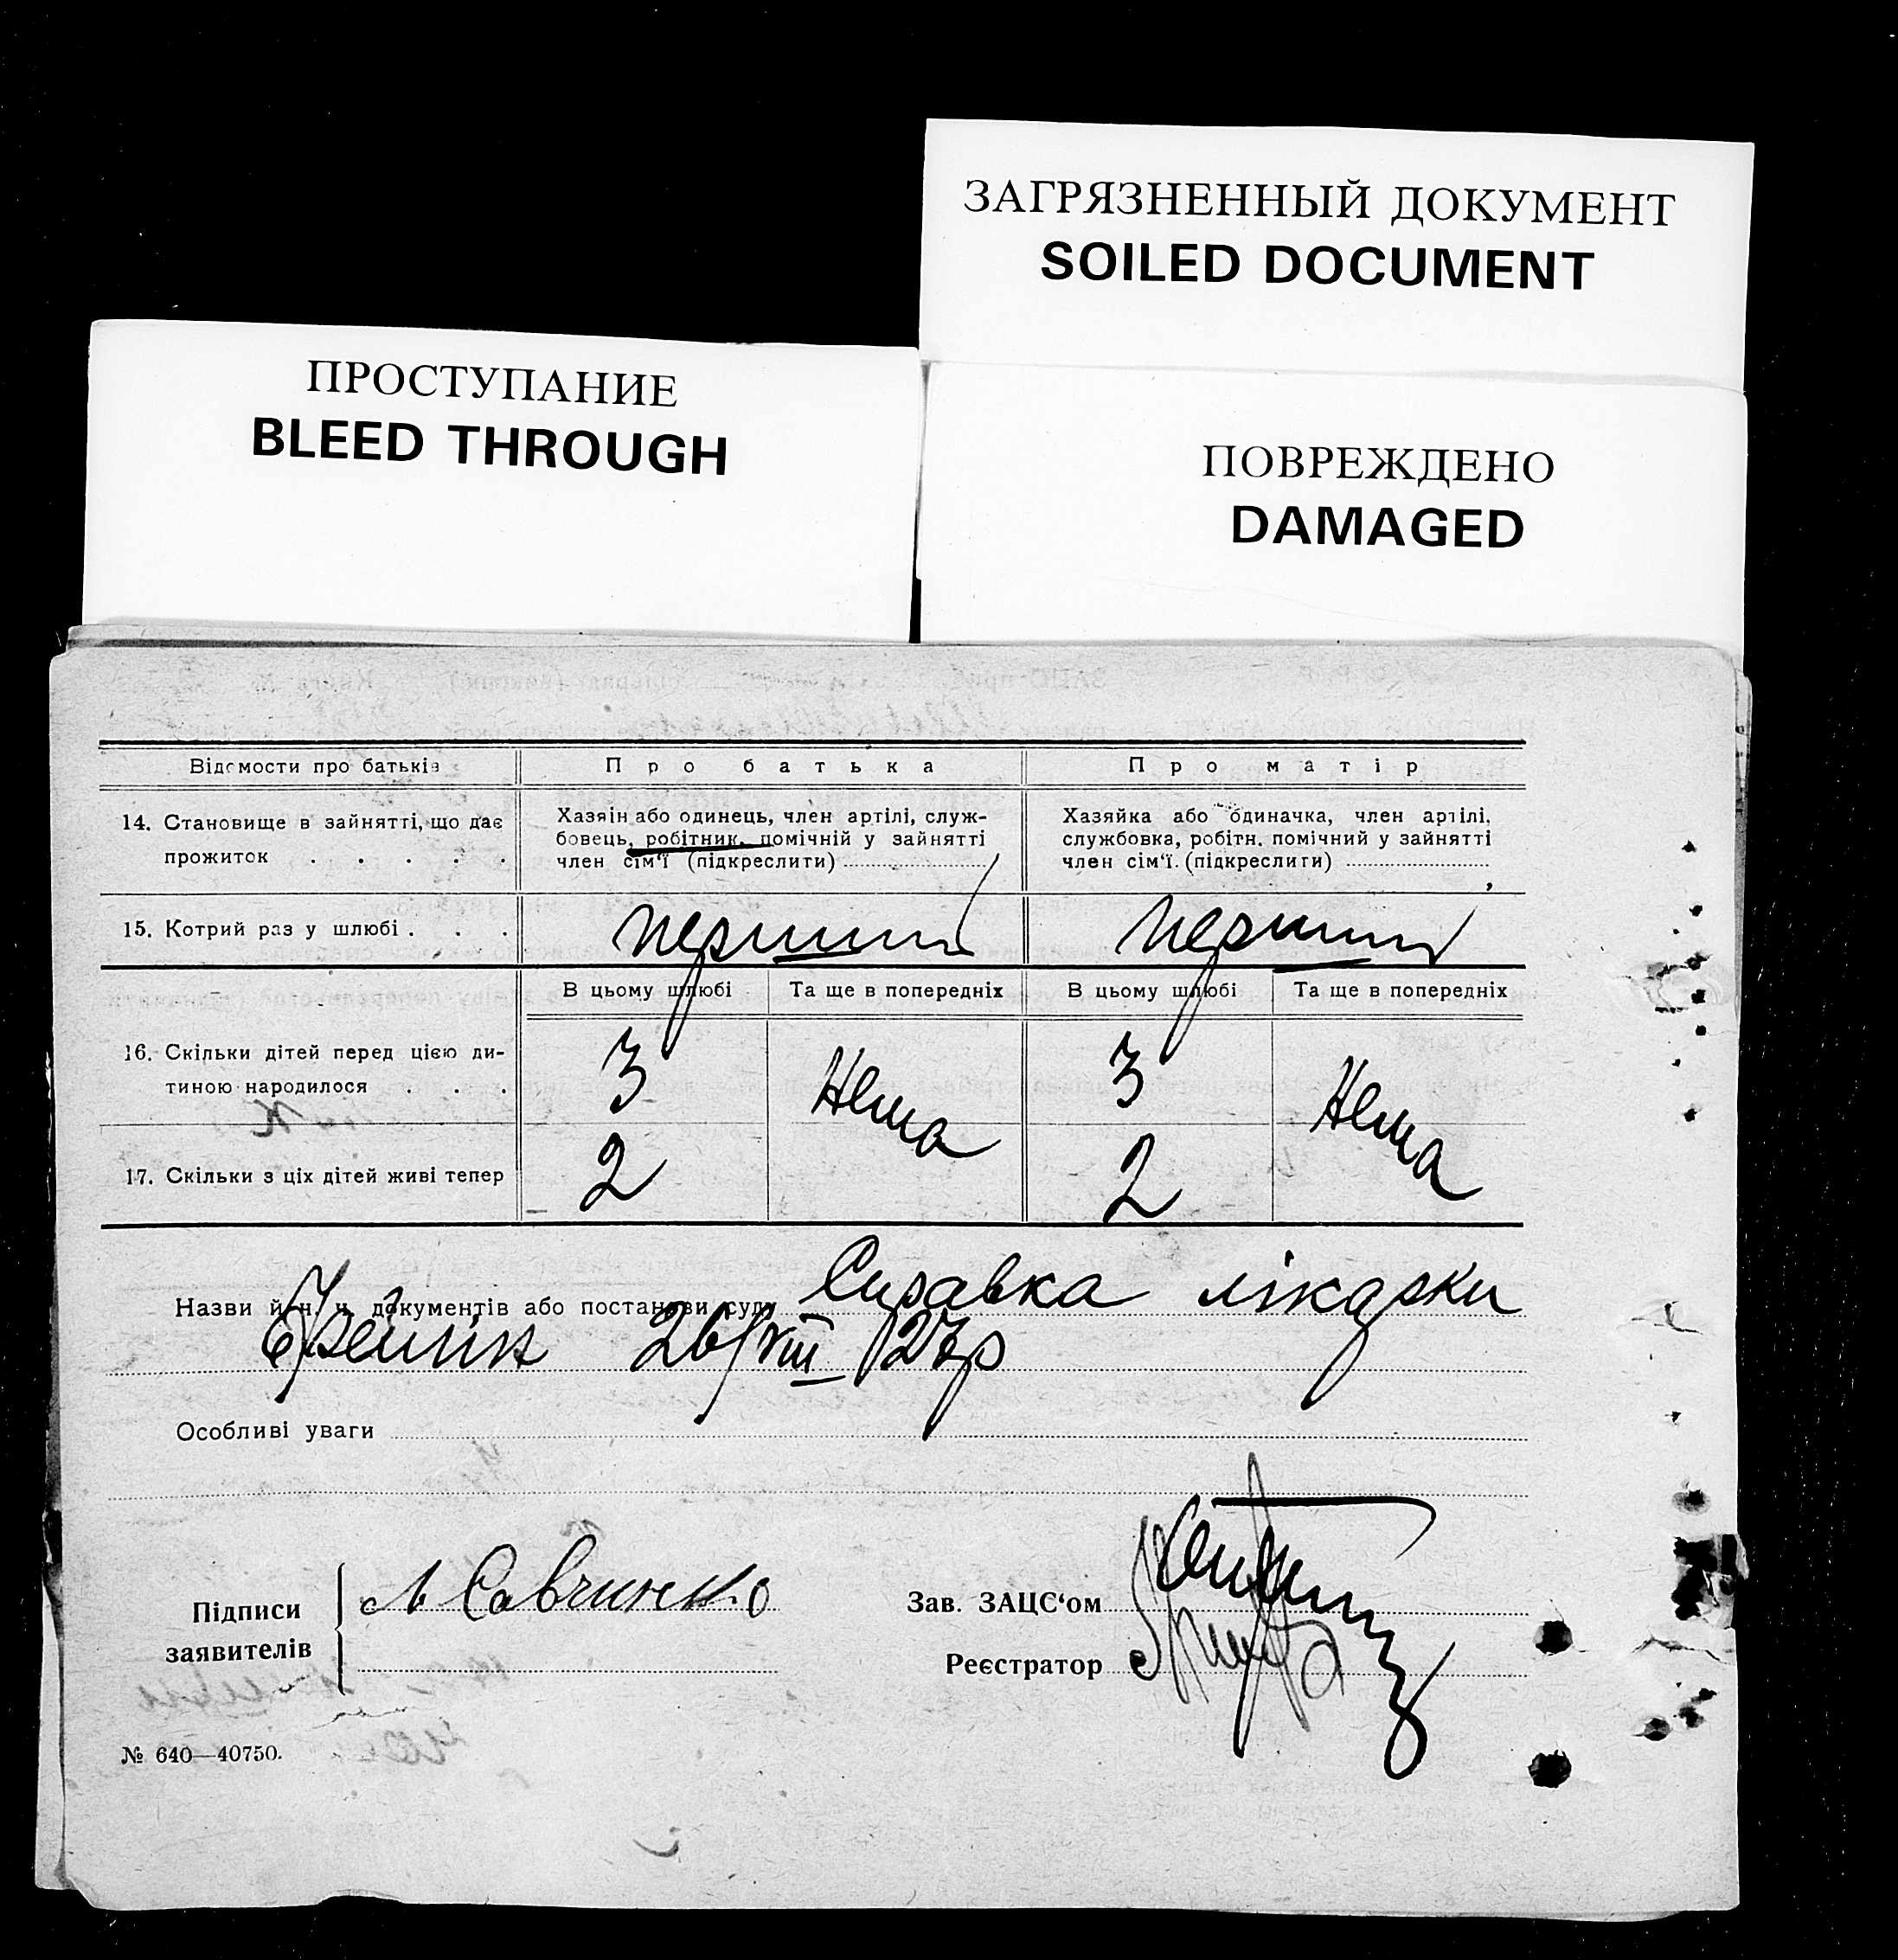 ЗАГРЯЗНЕННЫЙ ДОКУМЕНТ
SOILED DOCUMENT
ПРОСТУПАНИЕ
BLEED THROUGH
ПОВРЕЖДЕНО
DAMAGED
Відомости про батьків
Про батька
Про матір
14. Становище в зайнятті, що дає
прожиток . . . . .
Хазяін або одинець, член артілі, служ-
бовець, робітник, помічній у зайнятті
член сім'ї (підкреслити)
Хазяйка або одиначка, член артілі,
службовка, робітн. помічний у зайнятті
член сім'ї. (підкреслити)
15. Котрий раз у шлюбі . . .
перший
перший
В цьому шлюбі
Та ще в попередніх
В цьому шлюбі
Та ще в попередніх
16. Скільки дітей перед цією ди-
тиною народилося . . .
3
Нема
3
Нема
17. Скільки з ціх дітей живі тепер
2
2
Назви й н. н. документів або постанови суду Справка лікарки
26/VIII 27р
Особливі уваги
Підписи
заявителів
Савченко
Зав. ЗАЦС'ом
Реєстратор
№ 640—40750.